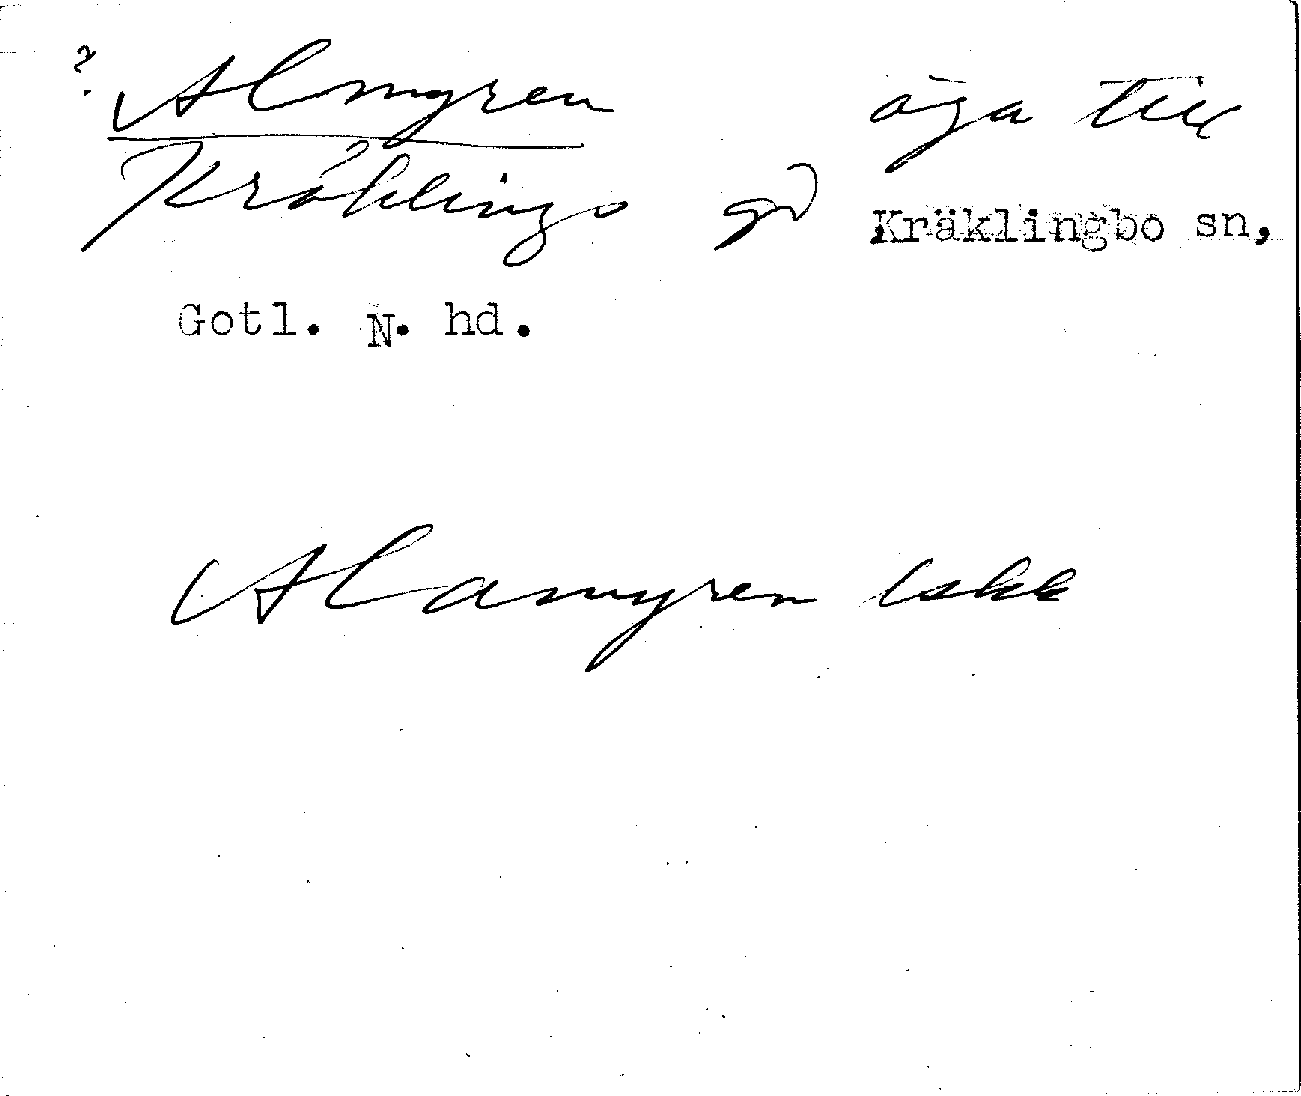 ? Almgren äga till
Kräklings gd Kräklingbo sn,
Gotl. N. hd.
Alamgren Iskk